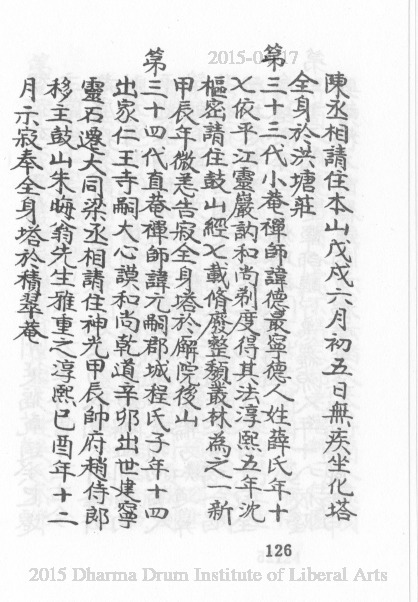 陳丞相請住本山戊戌六月初五日無疾坐化塔
全身於洪塘莊
第三十三代小菴禪師諱德最寧德人姓薛氏年十
乂依平江靈巖訥和尚剃度得其法淳熙五年沈
樞密請住鼓山經乂載脩廢整頹叢林為之一新
甲辰年微恙告寂全身塔於廨院後山
第三十四代直菴禪師諱元嗣郡城程氏子年十四
出家仁王寺嗣大心謨和尚乾道辛卯出世建寧
靈石遷大同梁丞相請住神光甲辰帥府趙侍郎
移主鼓山朱晦翁先生雅重之淳熙巳酉年十二
月示寂奉全身塔於積翠菴
126
2015 Dharma Drum Institute of Liberal Arts